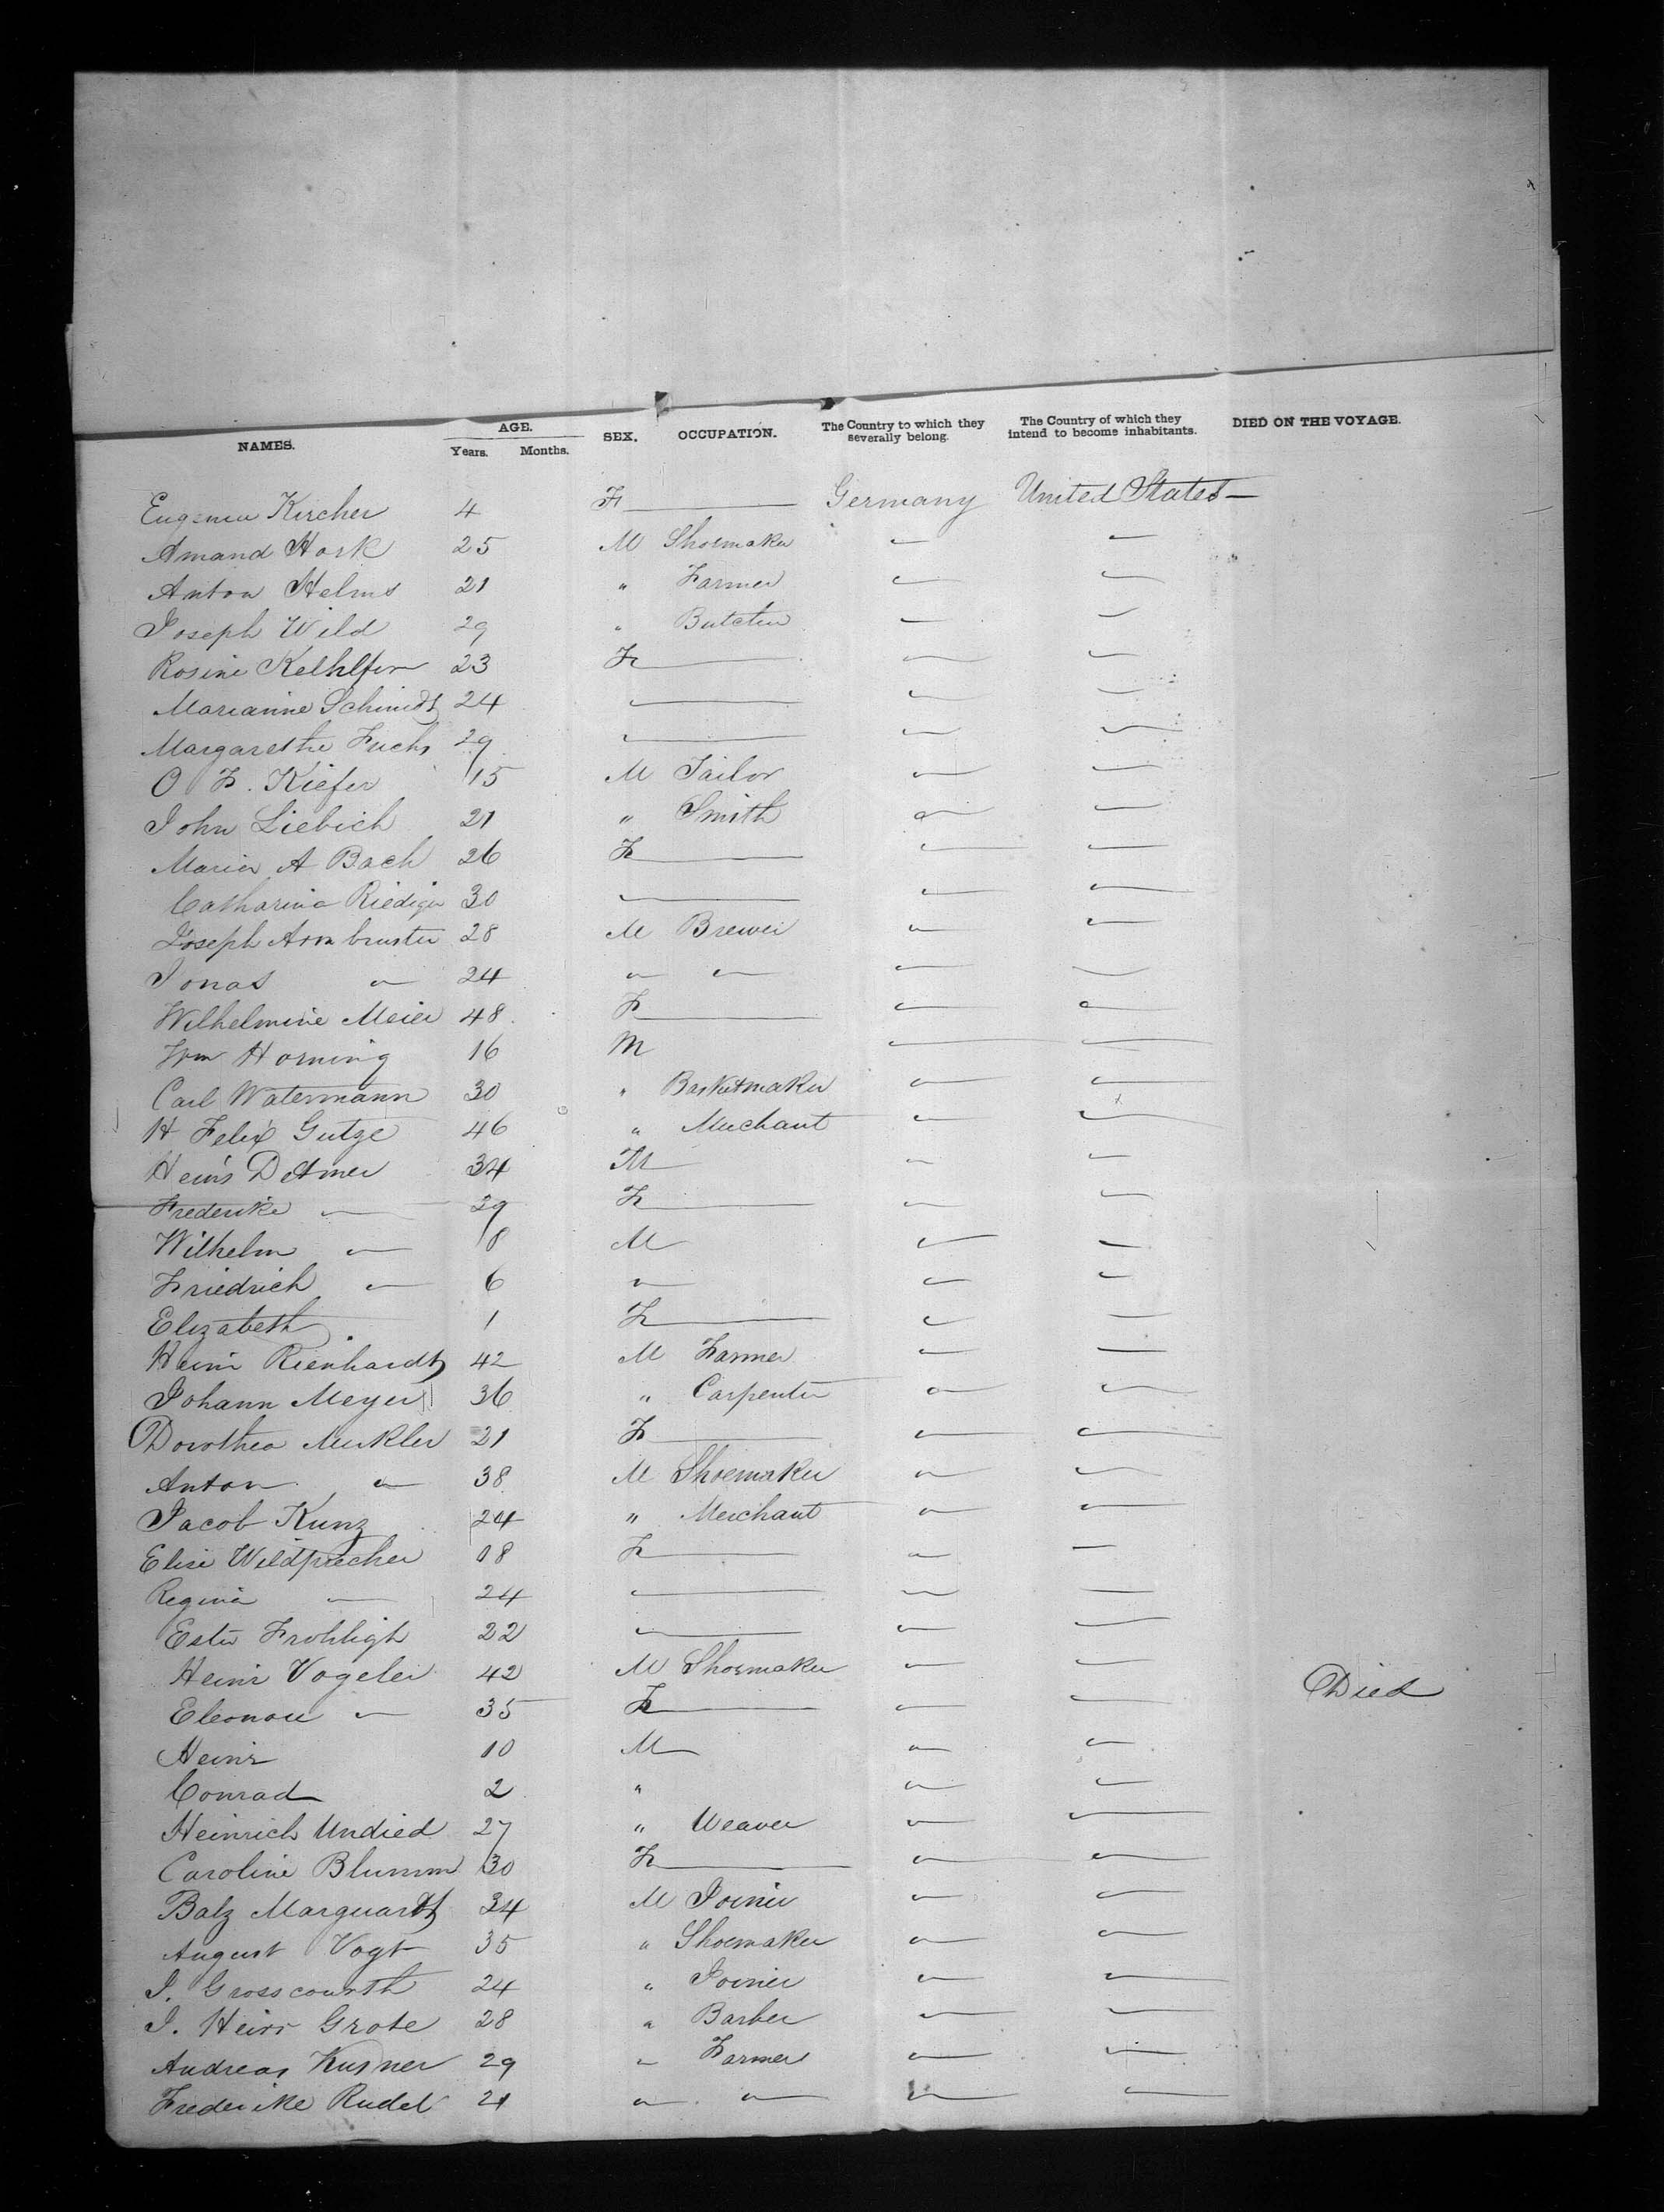 NAMES. AGE. Years. Months. SEX. OCCUPATION. The Country to which they severally belong. The Country of which they intend to become inhabitants. DIED ON THE VOYAGE.
Eugenia Kircher 4 F — Germany United States —
Amand Hork 25 M Shoemaker — —
Anton Helms 21 " Farmer — —
Joseph Wild 29 " Butcher — —
Rosine 23 F — — —
Marianne Schmidt 24 — — —
Margarethe Fuchs 29 — — —
O F. Kiefer 15 M Tailor — —
John Liebich 21 " Smith — —
Maria A Bach 26 F — — —
Catharina Riediger 30 — — —
Joseph Armbruster 28 M Brewer — —
Jonas " 24 " " — —
Wilhelmine Meier 48 F — — —
Wm Horning 16 M — —
Carl Watermann 30 " Basketmaker — —
H Felix Gutze 46 " Merchant — —
Heinr Detmer 34 M — —
Frederike — 29 F — — —
Wilhelm — 8 M — —
Friedrich — 6 " — —
Elizabeth 1 F — — —
Heinr Rienhardt 42 M Farmer — —
Johann Meyer 36 " Carpenter — —
Dorothea Murkler 21 F — — —
Anton " 38 M Shoemaker — —
Jacob Kunz 24 " Merchant — —
Elise Wildpracher 18 F — — —
Regina — 24 — — —
Ester Frohligh 22 — — —
Heinr Vogeler 42 M Shoemaker — —
Eleonore — 35 F — — — Died
Heinr 10 M — —
Conrad 2 " — —
Heinrich Undied 27 " Weaver — —
Caroline Blumm 30 F — — —
Balz Marquardt 34 M Joiner — —
August Vogt 35 " Shoemaker — —
J. Grosscourth 24 " Joiner — —
J. Heinr Grote 28 " Barber — —
Andreas Kusner 29 " Farmer — —
Frederike Rudel 21 " " — —